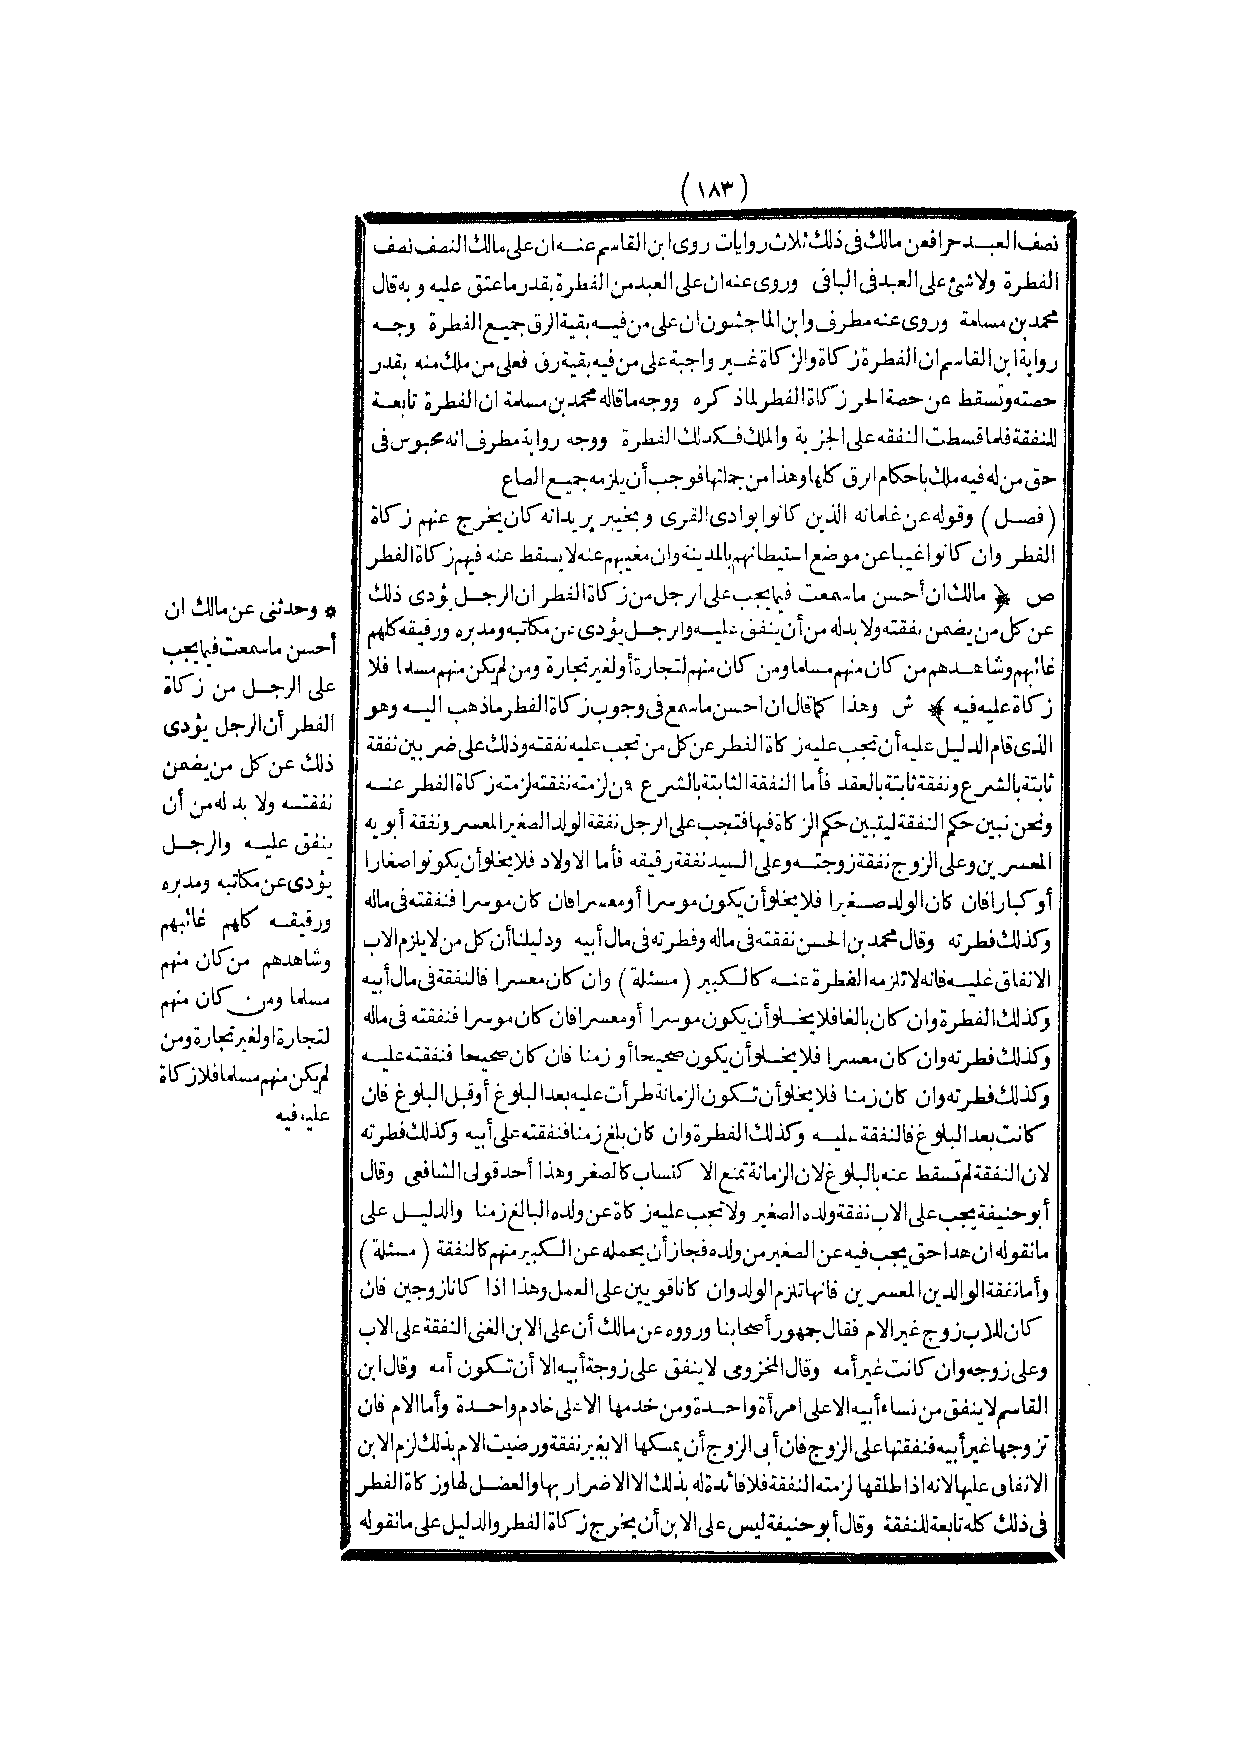 (١٨٣)
نصف العبد حرا فعن مالك فى ذلك ثلاث روايات روى ابن القاسم عنه ان على مالك النصف نصف
الفطرة ولاشئ على العبد فى الباقى وروى عنه ان على العبد من الفطرة بقدر ما عتق عليه وبه قال
محمد بن مسلمة وروى عنه مطرف وابن الماجشون ان على من فيه بقية الرق جميع الفطرة وجه
رواية ابن القاسم ان الفطرة زكاة والزكاة غير واجبة على من فيه بقية رق فعلى من ملك منه بقدر
حصته وتسقط عن حصة الحر زكاة الفطر لماذ كره ووجه ماقاله محمد بن مسلمة ان الفطرة تابعة
للنفقة فلما قسطت النفقه على الجزية والملك فكذلك الفطرة ووجه رواية مطرف انه محبوس فى
حق من له فيه ملك باحكام الرق كلها وهذا من جملتها فوجب أن يلزمه جميع الصاع
(فصل) وقوله عن غلمانه الذين كانوا بوادى القرى وبخيبر يريد انه كان يخرج عنهم زكاة
الفطر وان كانوا غيبا عن موضع استيطانهم بالمدينة وان مغيبهم عنه لا يسقط عنه فيهم زكاة الفطر
ص ﴿ مالك ان أحسن ما سمعت فيما يجب على الرجل من زكاة الفطر ان الرجل يؤدى ذلك
عن كل من يضمن نفقته ولا بد له من أن ينفق عليه والرجل يؤدى عن مكاتبه ومدبره ورقيقه كلهم
غائبهم وشاهدهم من كان منهم مسلما ومن كان منهم لتجارة أو لغير تجارة ومن لم يكن منهم مسلما فلا
زكاة عليه فيه ﴾ ش وهذا كما قال ان احسن ما سمع فى وجوب زكاة الفطر ما ذهب اليه وهو
الذى قام الدليل عليه أن تجب عليه زكاة الفطر عن كل من تجب عليه نفقته وذلك على ضربين نفقة
ثابتة بالشرع ونفقة ثابتة بالعقد فأما النفقة الثابتة بالشرع فن لزمته نفقته لزمته زكاة الفطر عنه
ونحن نبين حكم النفقة ليتبين حكم الزكاة فيها فتجب على الرجل نفقة الولد الصغير المعسر ونفقة أبويه
المعسرين وعلى الزوج نفقة زوجته وعلى السيد نفقة رقيقه فأما الاولاد فلا يخلو أن يكونوا صغارا
أو كبارا فان كان الولد صغيرا فلا يخلو أن يكون موسرا أو معسرا فان كان موسرا فنفقته فى ماله
وكذلك فطرته وقال محمد بن الحسن نفقته فى ماله وفطرته فى مال أبيه ودليلنا أن كل من لا يلزم الاب
الانفاق عليه فانه لا تلزمه الفطرة عنه كالكبير (مسئلة) وان كان معسرا فالنفقة فى مال أبيه
وكذلك الفطرة وان كان بالغا فلا يخلو أن يكون موسرا أو معسرا فان كان موسرا فنفقته فى ماله
وكذلك فطرته وان كان معسرا فلا يخلو أن يكون صحيحا أو زمنا فان كان صحيحا فنفقته عليه
وكذلك فطرته وان كان زمنا فلا يخلو أن تكون الزمانة طرأت عليه بعد البلوغ أو قبل البلوغ فان
كانت بعد البلوغ فالنفقة عليه وكذلك الفطرة وان كان بلغ زمنا فنفقته على أبيه وكذلك فطرته
لان النفقة لم تسقط عنه بالبلوغ لان الزمانة تمنع الاكتساب كالصغر وهذا أحد قولى الشافعى وقال
أبو حنيفة يجب على الاب نفقة ولده الصغير ولا تجب عليه زكاة عن ولده البالغ زمنا والدليل على
ما نقوله ان هذا حق يجب فيه عن الصغير من ولده فجاز أن يحمله عن الكبير منهم كالنفقة (مسئلة)
وأما نفقة الوالدين المعسرين فانها تلزم الولد وان كانا قويين على العمل وهذا اذا كانا زوجين فان
كان للاب زوج غير الام فقال جمهور أصحابنا ورووه عن مالك أن على الابن الغنى النفقة على الاب
وعلى زوجه وان كانت غير أمه وقال المخزومى لا ينفق على زوجة أبيه الا أن تكون أمه وقال ابن
القاسم لا ينفق من نساء أبيه الا على امرأة واحدة ومن خدمها الا على خادم واحدة وأما الام فان
تزوجها غير أبيه فنفقتها على الزوج فان أبى الزوج أن يمسكها الا بغير نفقة ورضيت الام بذلك لزم الابن
الانفاق عليها لانه اذا طلقها لزمته النفقة فلا فائدة له بذلك الا الاضرار بها والعضل لها وزكاة الفطر
فى ذلك كله تابعة للنفقة وقال أبو حنيفة ليس على الابن أن يخرج زكاة الفطر والدليل على ما نقوله
* وحدثنى عن مالك ان
أحسن ما سمعت فيما يجب
على الرجل من زكاة
الفطر أن الرجل يؤدى
ذلك عن كل من يضمن
نفقته ولا بد له من أن
ينفق عليه والرجل
يؤدى عن مكاتبه ومدبره
ورقيقه كلهم غائبهم
وشاهدهم من كان منهم
مسلما ومن كان منهم
لتجارة اولغير تجارة ومن
لم يكن منهم مسلما فلا زكاة
عليه فيه